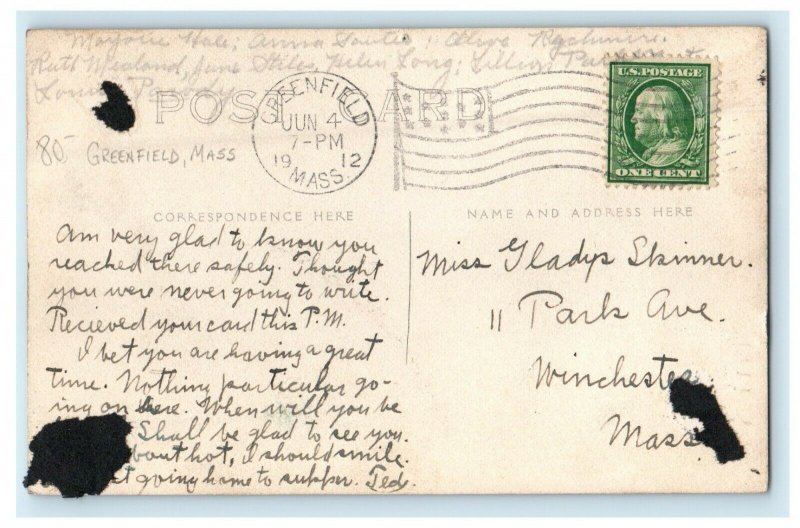 Marjorie Hale; Anna
Ruth
Helen Long;
POST CARD
GREENFIELD
JUN 4
7-PM
19 12
MASS.
U.S. POSTAGE
ONE CENT
80-
GREENFIELD, MASS
CORRESPONDENCE HERE
NAME AND ADDRESS HERE
Am very glad to know you
reached there safely. Thought
you were never going to write.
Recieved your card this P.M.
I bet you are having a great
time. Nothing particular go-
ing on here. When will you be
Shall be glad to see you.
bout hot, I should smile.
going home to supper. Ted.
Miss Gladys Skinner.
11 Park Ave.
Winchester
Mass.